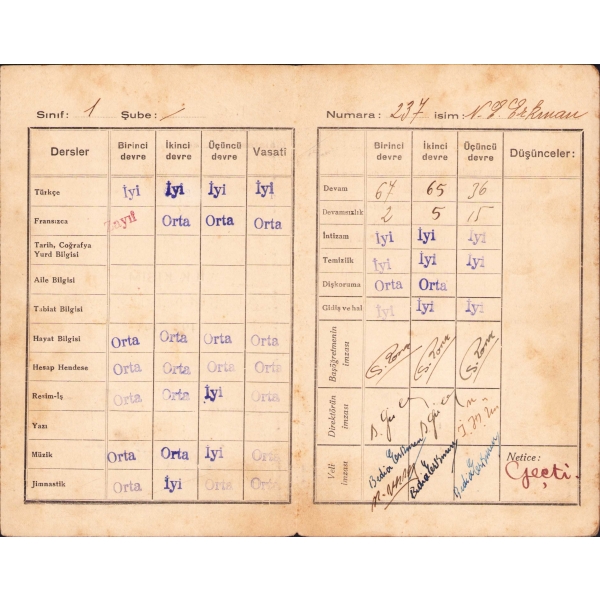 Sınıf: 1 Şube:
Dersler Birinci devre İkinci devre Üçüncü devre Vasati
Türkçe İyi İyi İyi İyi
Fransızca Zayıf Orta Orta Orta
Tarih, Coğrafya
Yurd Bilgisi
Aile Bilgisi
Tabiat Bilgisi
Hayat Bilgisi Orta Orta Orta Orta
Hesap Hendese Orta Orta Orta Orta
Resim-İş Orta Orta İyi Orta
Yazı
Müzik Orta Orta İyi Orta
Jimnastik Orta İyi Orta Orta
Numara: 237 isim: Erkman
Birinci devre İkinci devre Üçüncü devre Düşünceler:
Devam 67 65 36
Devamsızlık 2 5 15
İntizam İyi İyi İyi
Temizlik İyi İyi İyi
Dişkoruma Orta Orta
Gidiş ve hal İyi İyi İyi
Başöğretmenin imzası
Direktörün imzası
Veli imzası Bedia Erkman Bedia Erkman Bedia Erkman
Netice:
Geçti.